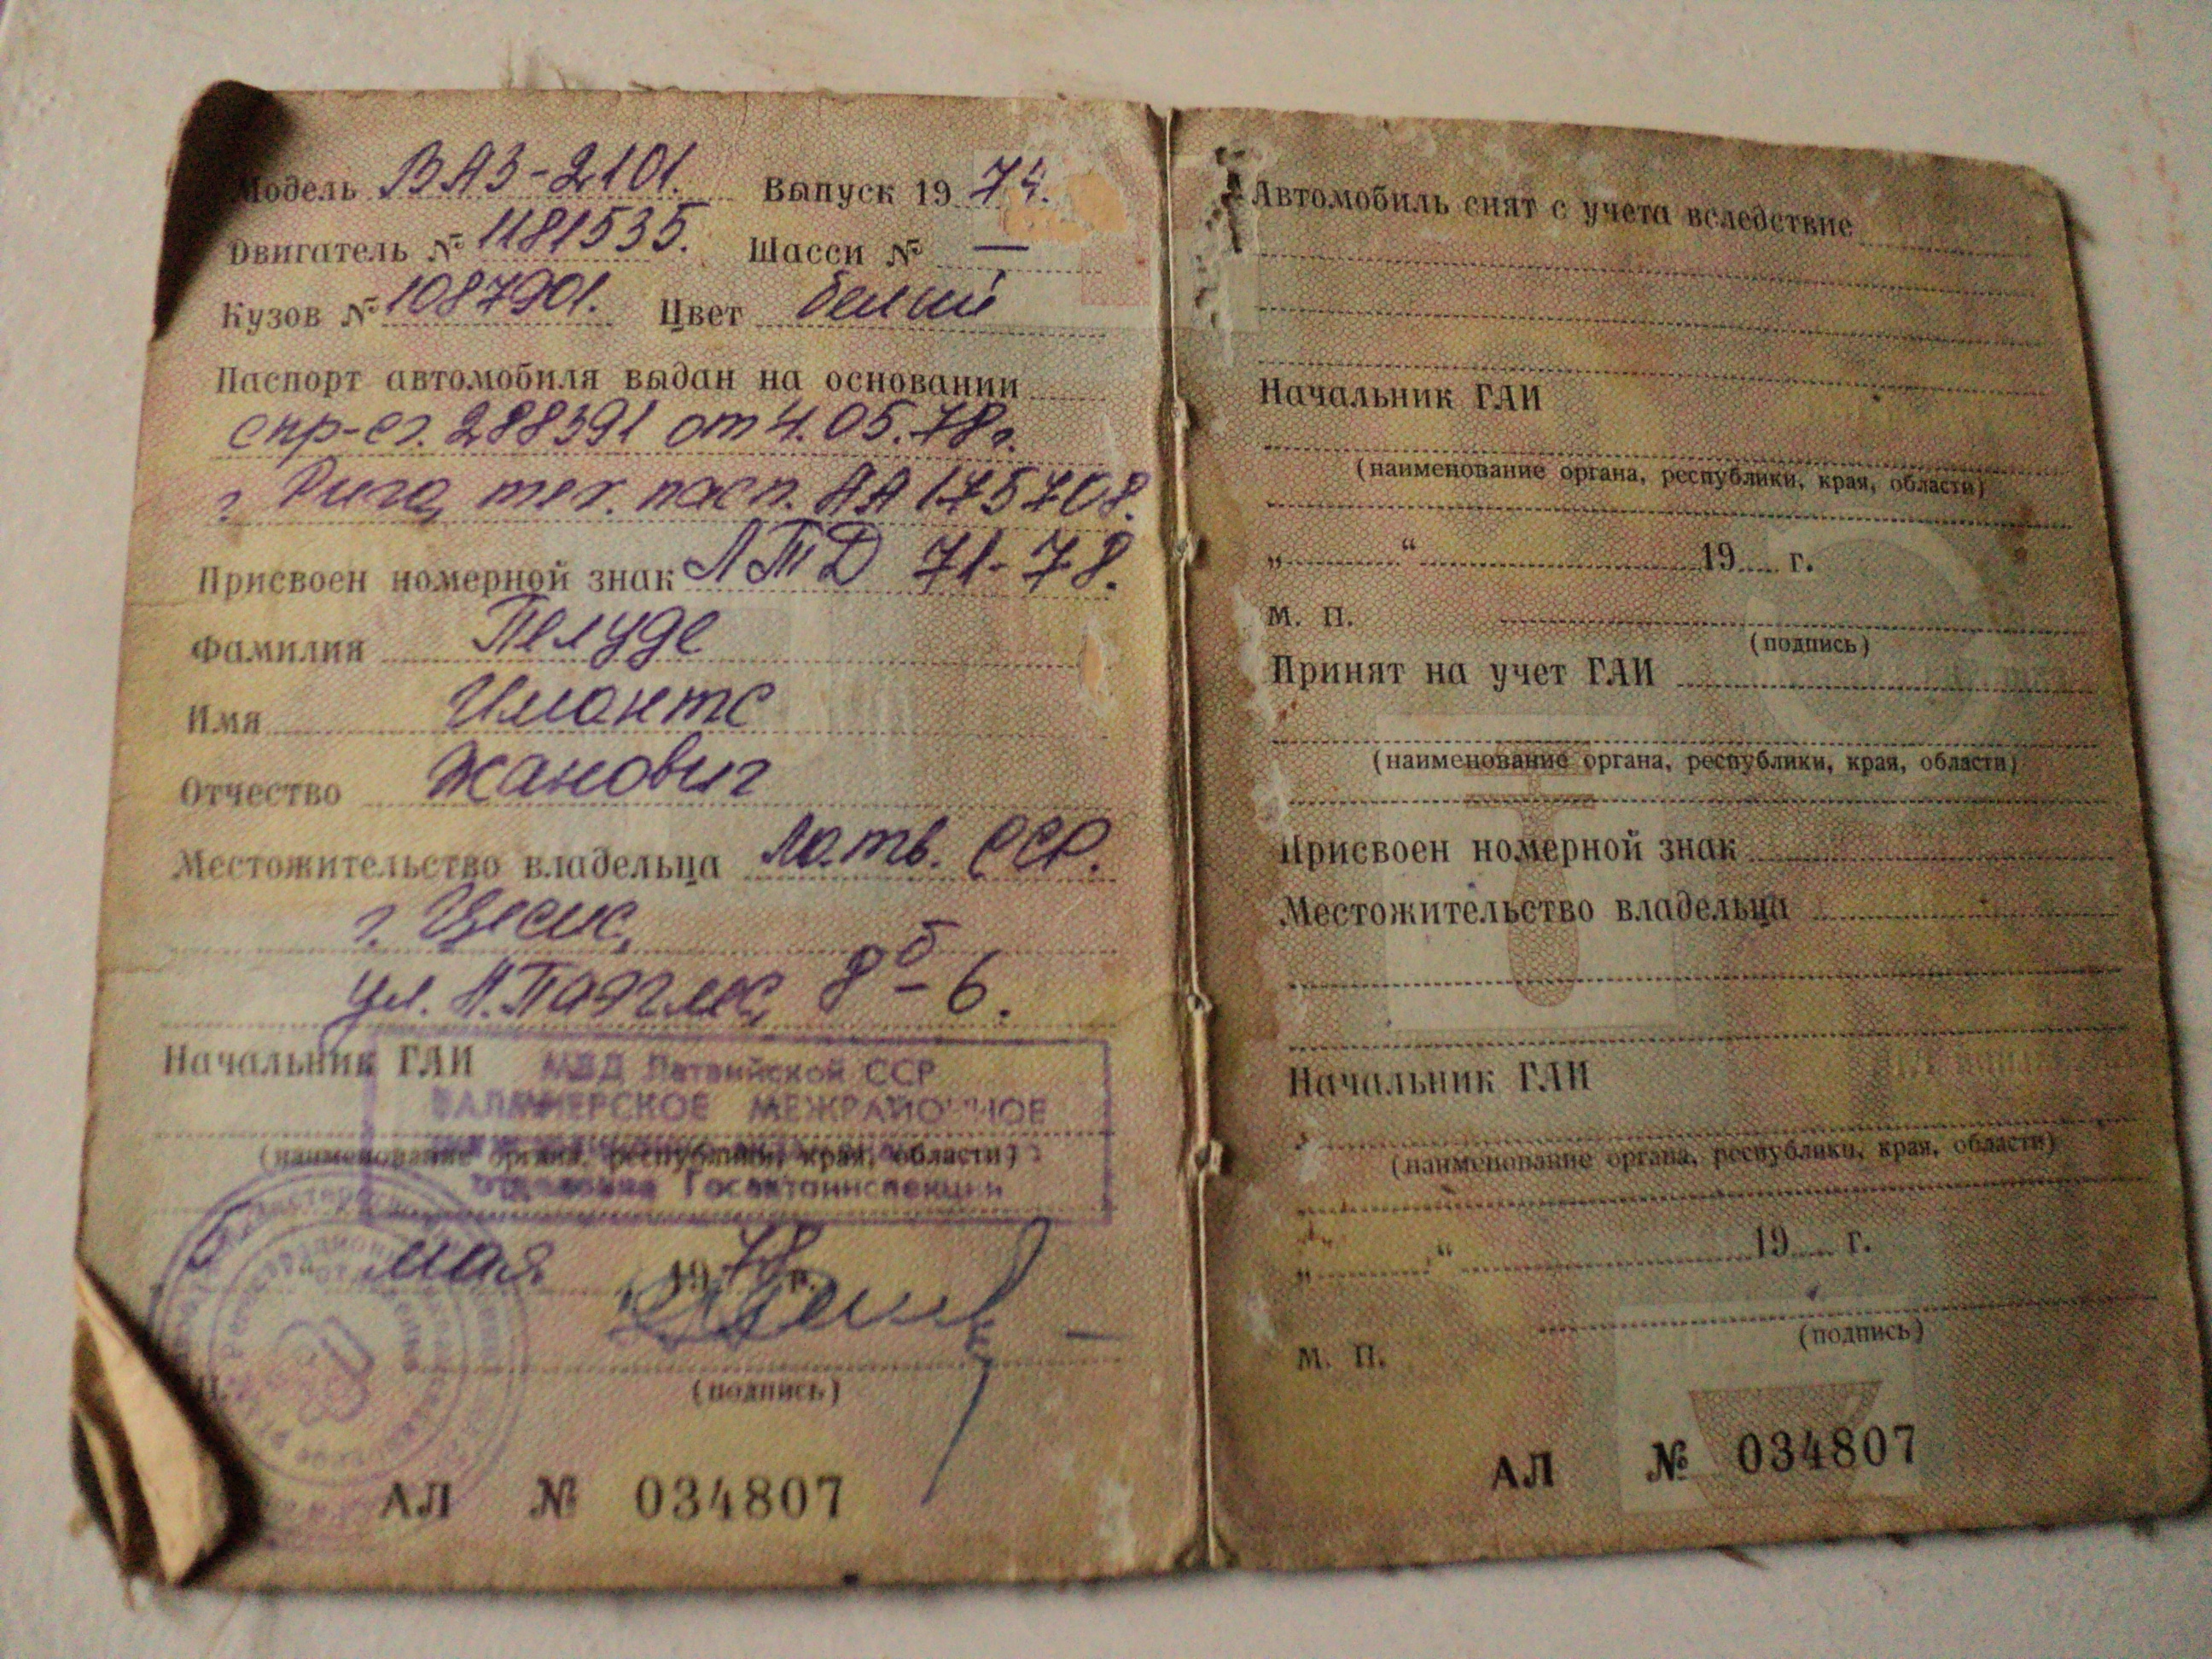 Модель ВАЗ-2101. Выпуск 1974.
Двигатель № 1181535. Шасси № —
Кузов № 1087901. Цвет белый
Паспорт автомобиля выдан на основании
спр-сч. 288391 от 4.05.78г.
г. Рига, тех. пасп. АА 175708.
Присвоен номерной знак ЛТД 71-78.
Фамилия Пелуде
Имя Имантс
Отчество Жанович
Местожительство владельца Латв. ССР.
г. Цесис,
ул. Л. Паэглес, 8б-6.
Начальник ГАИ
МВД Латвийской ССР
ВАЛМИЕРСКОЕ МЕЖРАЙОННОЕ
(наименование органа, республики, края, области)
отделение Госавтоинспекции
мая 1978 г.
(подпись)
АЛ № 034807
Автомобиль снят с учета вследствие
Начальник ГАИ
(наименование органа, республики, края, области)
„ “ 19 г.
М. П.
(подпись)
Принят на учет ГАИ
(наименование органа, республики, края, области)
Присвоен номерной знак
Местожительство владельца
Начальник ГАИ
(наименование органа, республики, края, области)
„ “ 19 г.
М. П.
(подпись)
АЛ № 034807